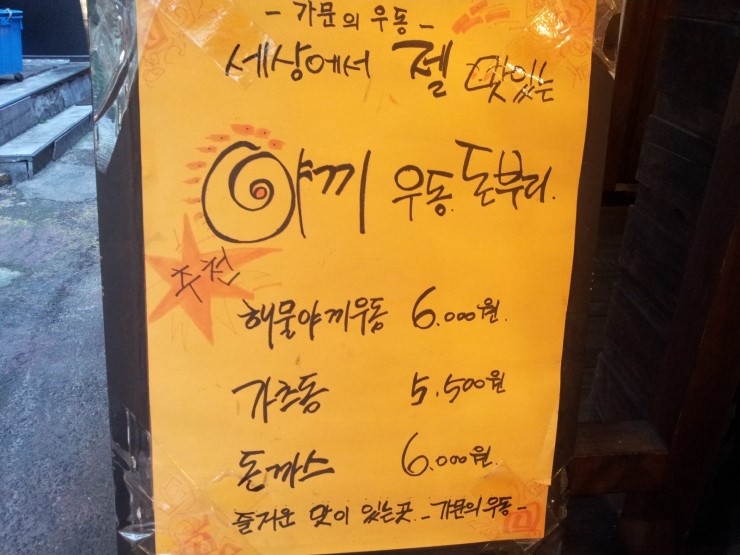 - 가문의 우동 -
세상에서 젤 맛있는
야끼 우동. 돈부리.
추천
해물야끼우동 6.000원.
가츠동 5.500원
돈까스 6.000원.
즐거운 맛이 있는곳 - 가문의우동 -